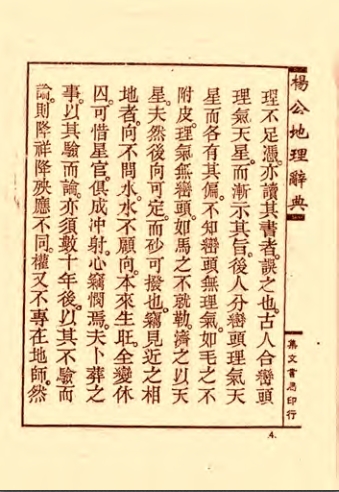 楊公地理辭典
集文書局印行
4.
理不足憑。亦讀其書者。誤之也。古人合巒頭
理氣天星。而漸示其旨。後人分巒頭理氣天
星而各有其偏。不知巒頭無理氣。如毛之不
附皮理氣無巒頭。如馬之不就勒。濟之以天
星。夫然後向可定。而砂可撥也。竊見近之相
地者。向不問水。水不顧向。本來生旺。全變休
囚。可惜星官。俱成冲射。心竊憫焉。夫卜葬之
事。以其驗而論。亦須數十年後。以其不驗而
論。則降祥降殃。應不同。權又不專在地師。然